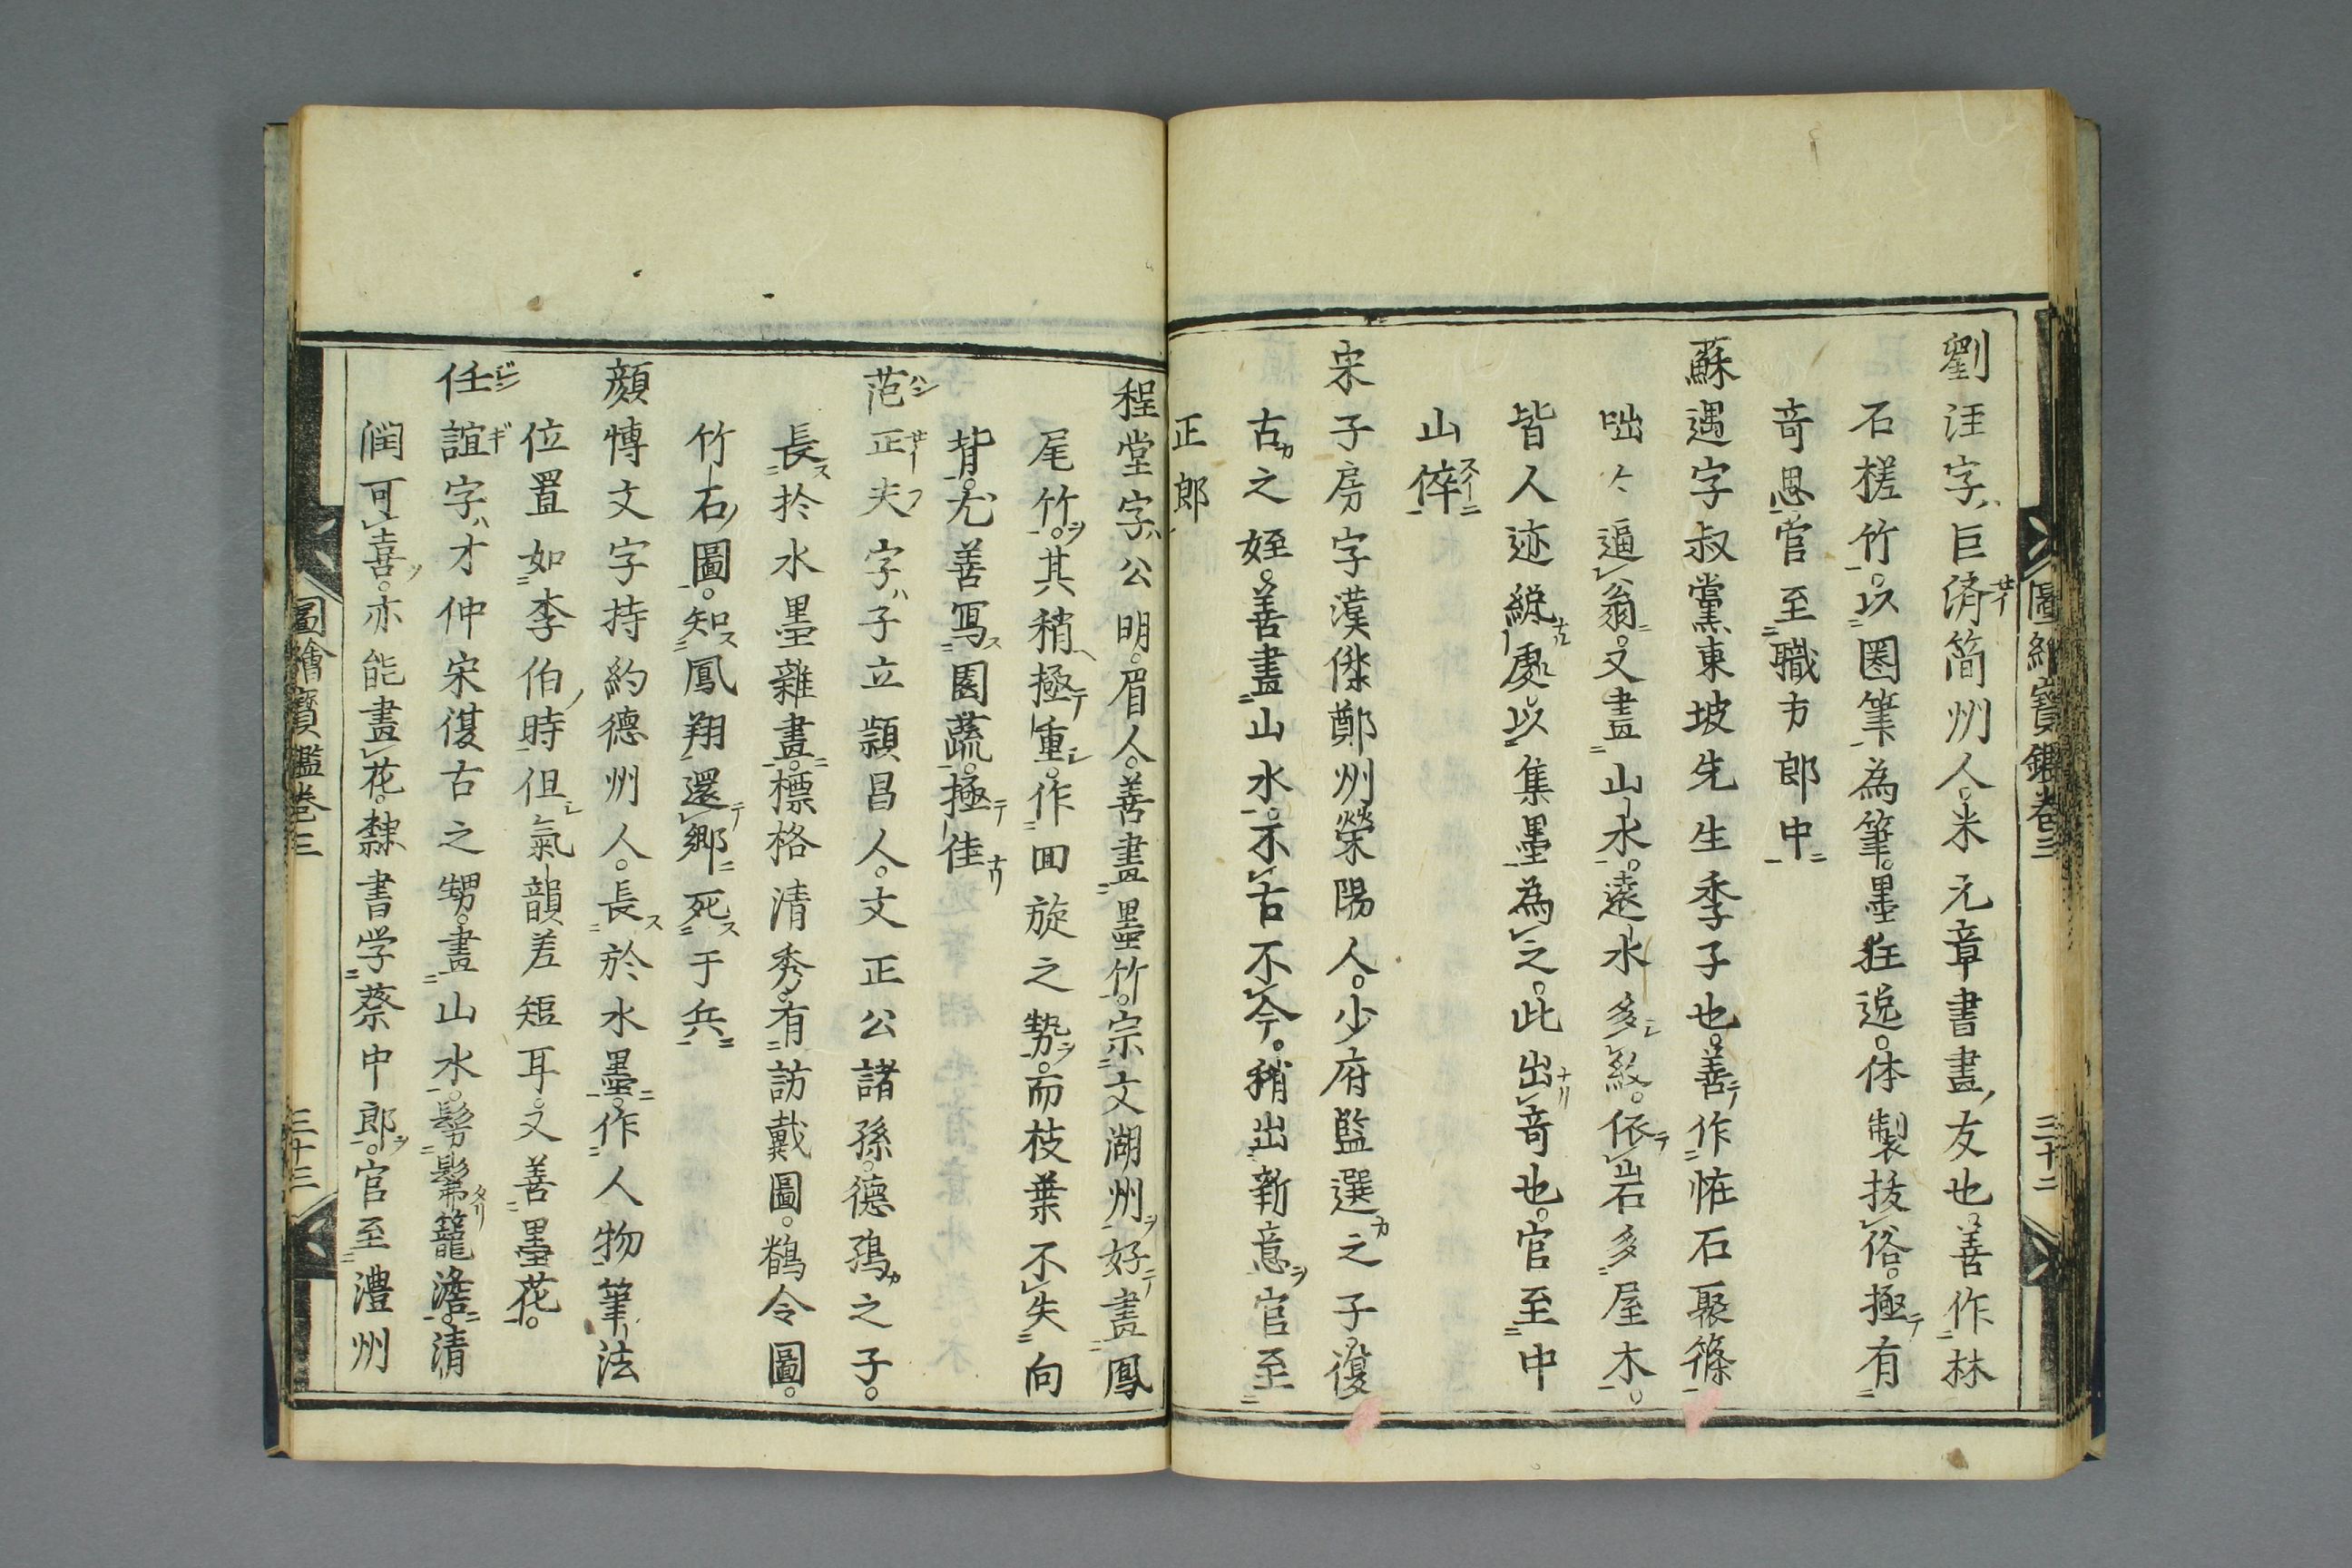 圖繪寶鑑卷三
三十二
劉涇字巨濟簡州人米元章書畫友也善作林
石槎竹以圏筆為筆墨狂逸体製抜俗極有
竒思官至職方郎中
蘇過字叔黨東坡先生季子也善作恠石叢篠
咄〻逼翁又畫山水遠水多紋依岩多屋木
皆人迹絶處以集墨為之此出竒也官至中
山倅
宋子房字漢傑鄭州榮陽人少府監選之子復
古之姪善畫山水不古不今稍出新意官至
正郎
程堂字公明眉人善畫墨竹宗文湖州好畫鳳
尾竹其稍極重作囬旋之勢而枝葉不失向
背尤善冩園蔬極佳
范正夫字子立頴昌人文正公諸孫德孺之子
長於水墨雜畫標格清秀有訪戴圖鶺令圖
竹石圖知鳳翔還郷死于兵
顏愽文字持約德州人長於水墨作人物筆法
位置如李伯時但氣韻差短耳又善墨花
任誼字才仲宋復古之甥畫山水髣髴籠澹清
潤可喜亦能畫花隸書学蔡中郎官至澧州
圖繪寶鑑卷三
三十三